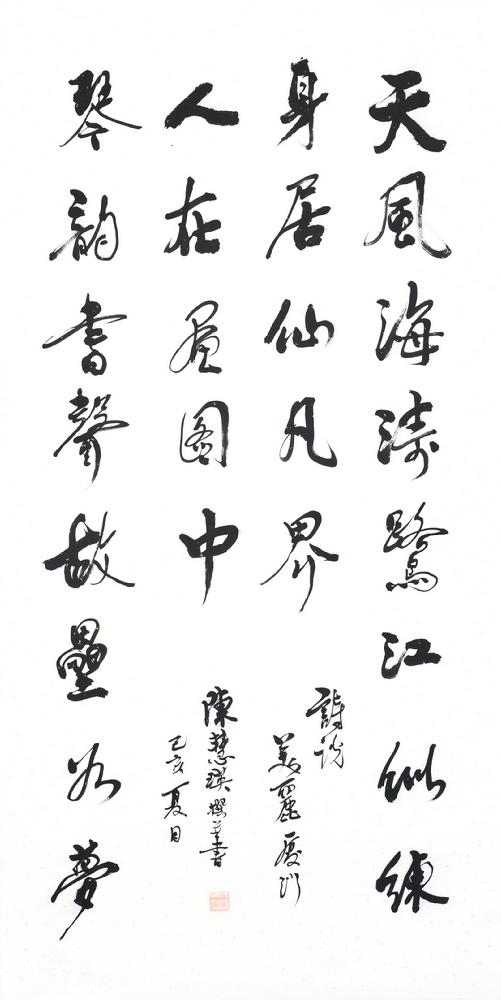 天風海濤鷺江似練
身居仙凡界
詩說
美麗廈門
琴韻書聲故壘如夢
人在畫圖中
陳慧瑛撰并書
己亥夏日